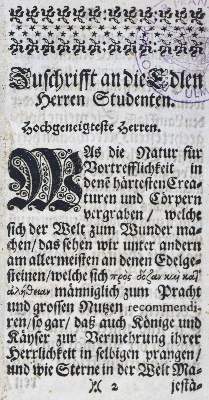 Zuschrifft an die Edlen
Herren Studenten.
Hochgeneigteste Herren.
WAs die Natur für
Vortrefflichkeit in
denē härtesten Crea-
turen und Cörpern
vergraben / welche
sich der Welt zum Wunder ma-
chen / das sehen wir unter andern
am allermeisten an denen Edelge-
steinen / welche sich πρὸς δόξαν καὶ καὶ
ἀλήθειαν männiglich zum Pracht
und grossen Nutzen recommendi-
ren / so gar / daß auch Könige und
Käyser zur Vermehrung ihrer
Herrlichkeit in selbigen prangen /
und wie Sterne in der Welt Ma-
2 jestä-